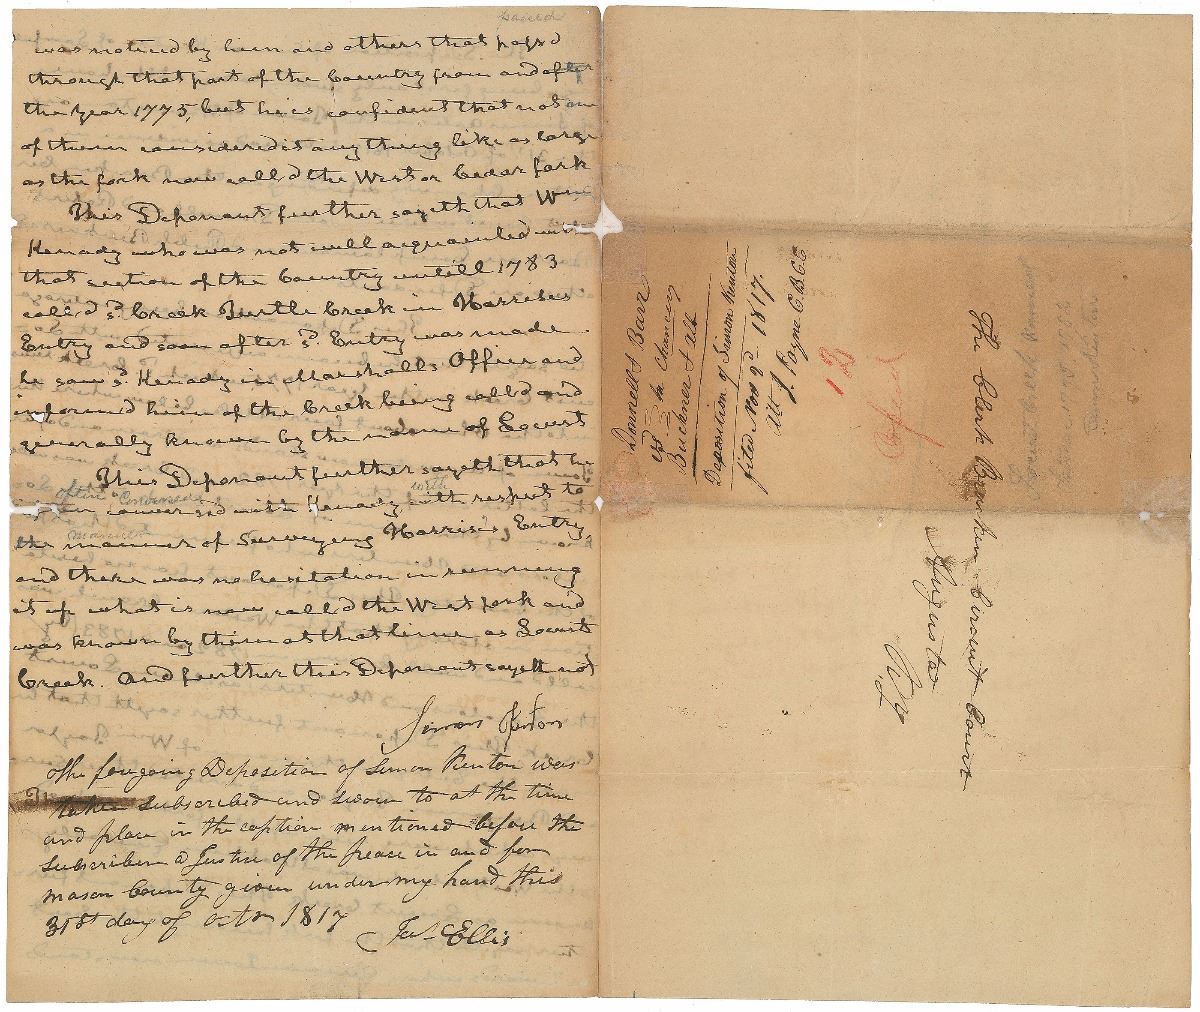 passed
was noticed by him and others that pass'd
through that part of the Country from and after
the year 1775, but he is confident that not one
of them considered it any thing like as large
as the fork now call'd the West or Cedar fork
This Deponant further sayeth that Wm
Kenady who was not well acquainted with
that section of the Country untill 1783
call'd sd. Creek Turtle Creek in Harrises
Entry and soon after sd. Entry was made
he saw sd. Kenady in Marshalls Office and
informed him of the Creek being call'd and
generally known by the name of Locust
This Deponant further sayeth that he
often Conversed with
often convers'd with Kenady with respect to
manner
the manner of Surveying Harrises Entry,
and there was no hesitation in running
it up what is now call'd the West fork and
was known by them at that time as Locust
Creek. And further this Deponant sayeth not
Simon Kenton
The foregoing Deposition of Simon Kenton was
taken subscribed and sworn to at the time
and place in the caption mentioned before the
subscriber a Justice of the peace in and for
mason County given under my hand this
31st day of Octr 1817
Jas Ellis
Donnell & Barr
vs In Chancery
Buckner & als
Deposition of Simon Kenton
filed Novr 9d 1817.
Att J. Payne C.B.C.C
12
Copied
The Clerk Bracken Circuit Court
Augusta
Ky